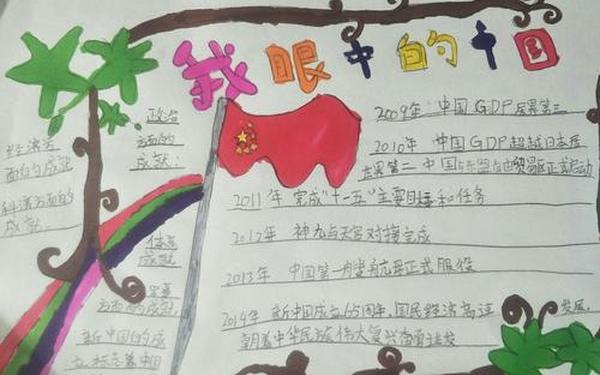 我眼中的中国
经济方
面的成就
科教方面的
成就。
政治
方面的
成就：
体系
成就
方面的成就。
新中国的成
2009年：中国GDP居界第三
2010年 中国GDP超越日本居
世界第二 中国东盟自由贸易区正式启动
2011年 完成“十一五”主要目标和任务
2012年 神九与天宫对接完成
2013年 中国第一艘航母正式服役
2014年 新中国成立65周年，国民经济高速发展，
朝着中华民族伟大复兴奋勇进发